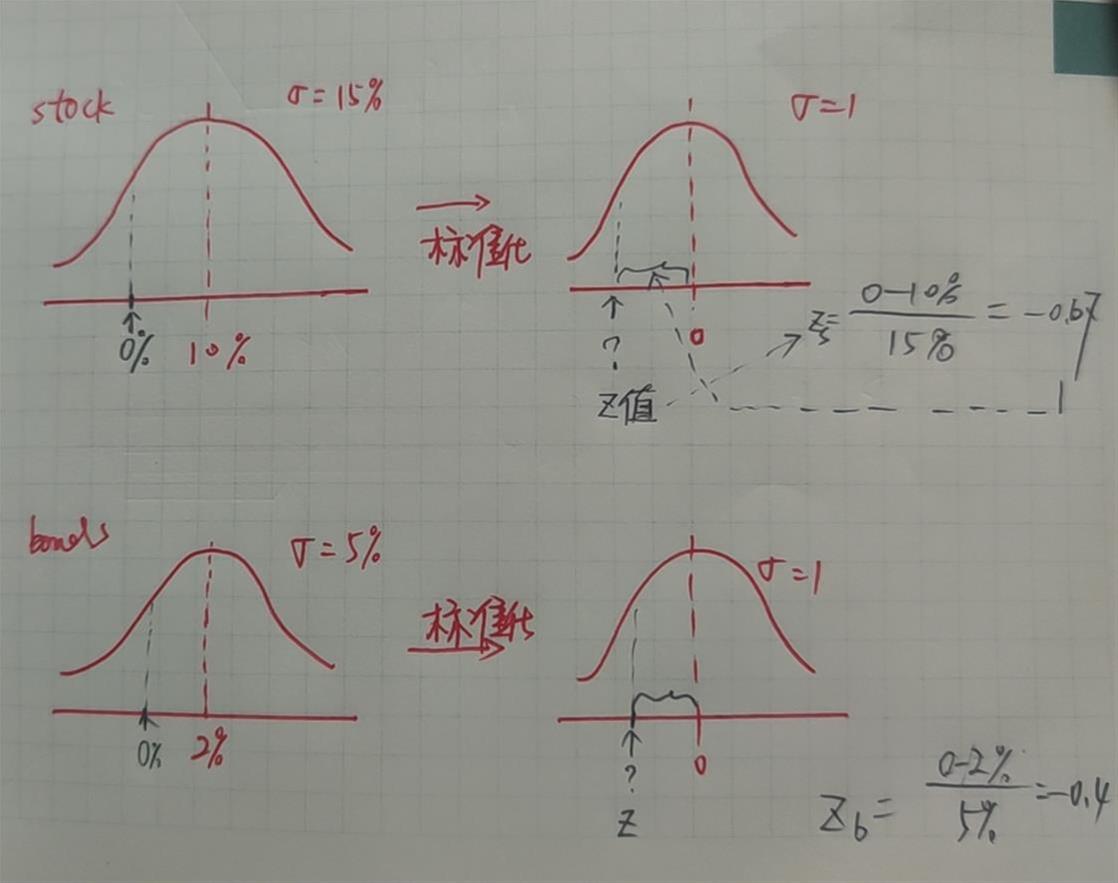 stock
σ=15%
0%
10%
标准化
σ=1
?
0
Z值
Zs=
0-10%
15%
=-0.67
bonds
σ=5%
0%
2%
标准化
σ=1
?
Z
0
Zb=
0-2%
5%
=-0.4